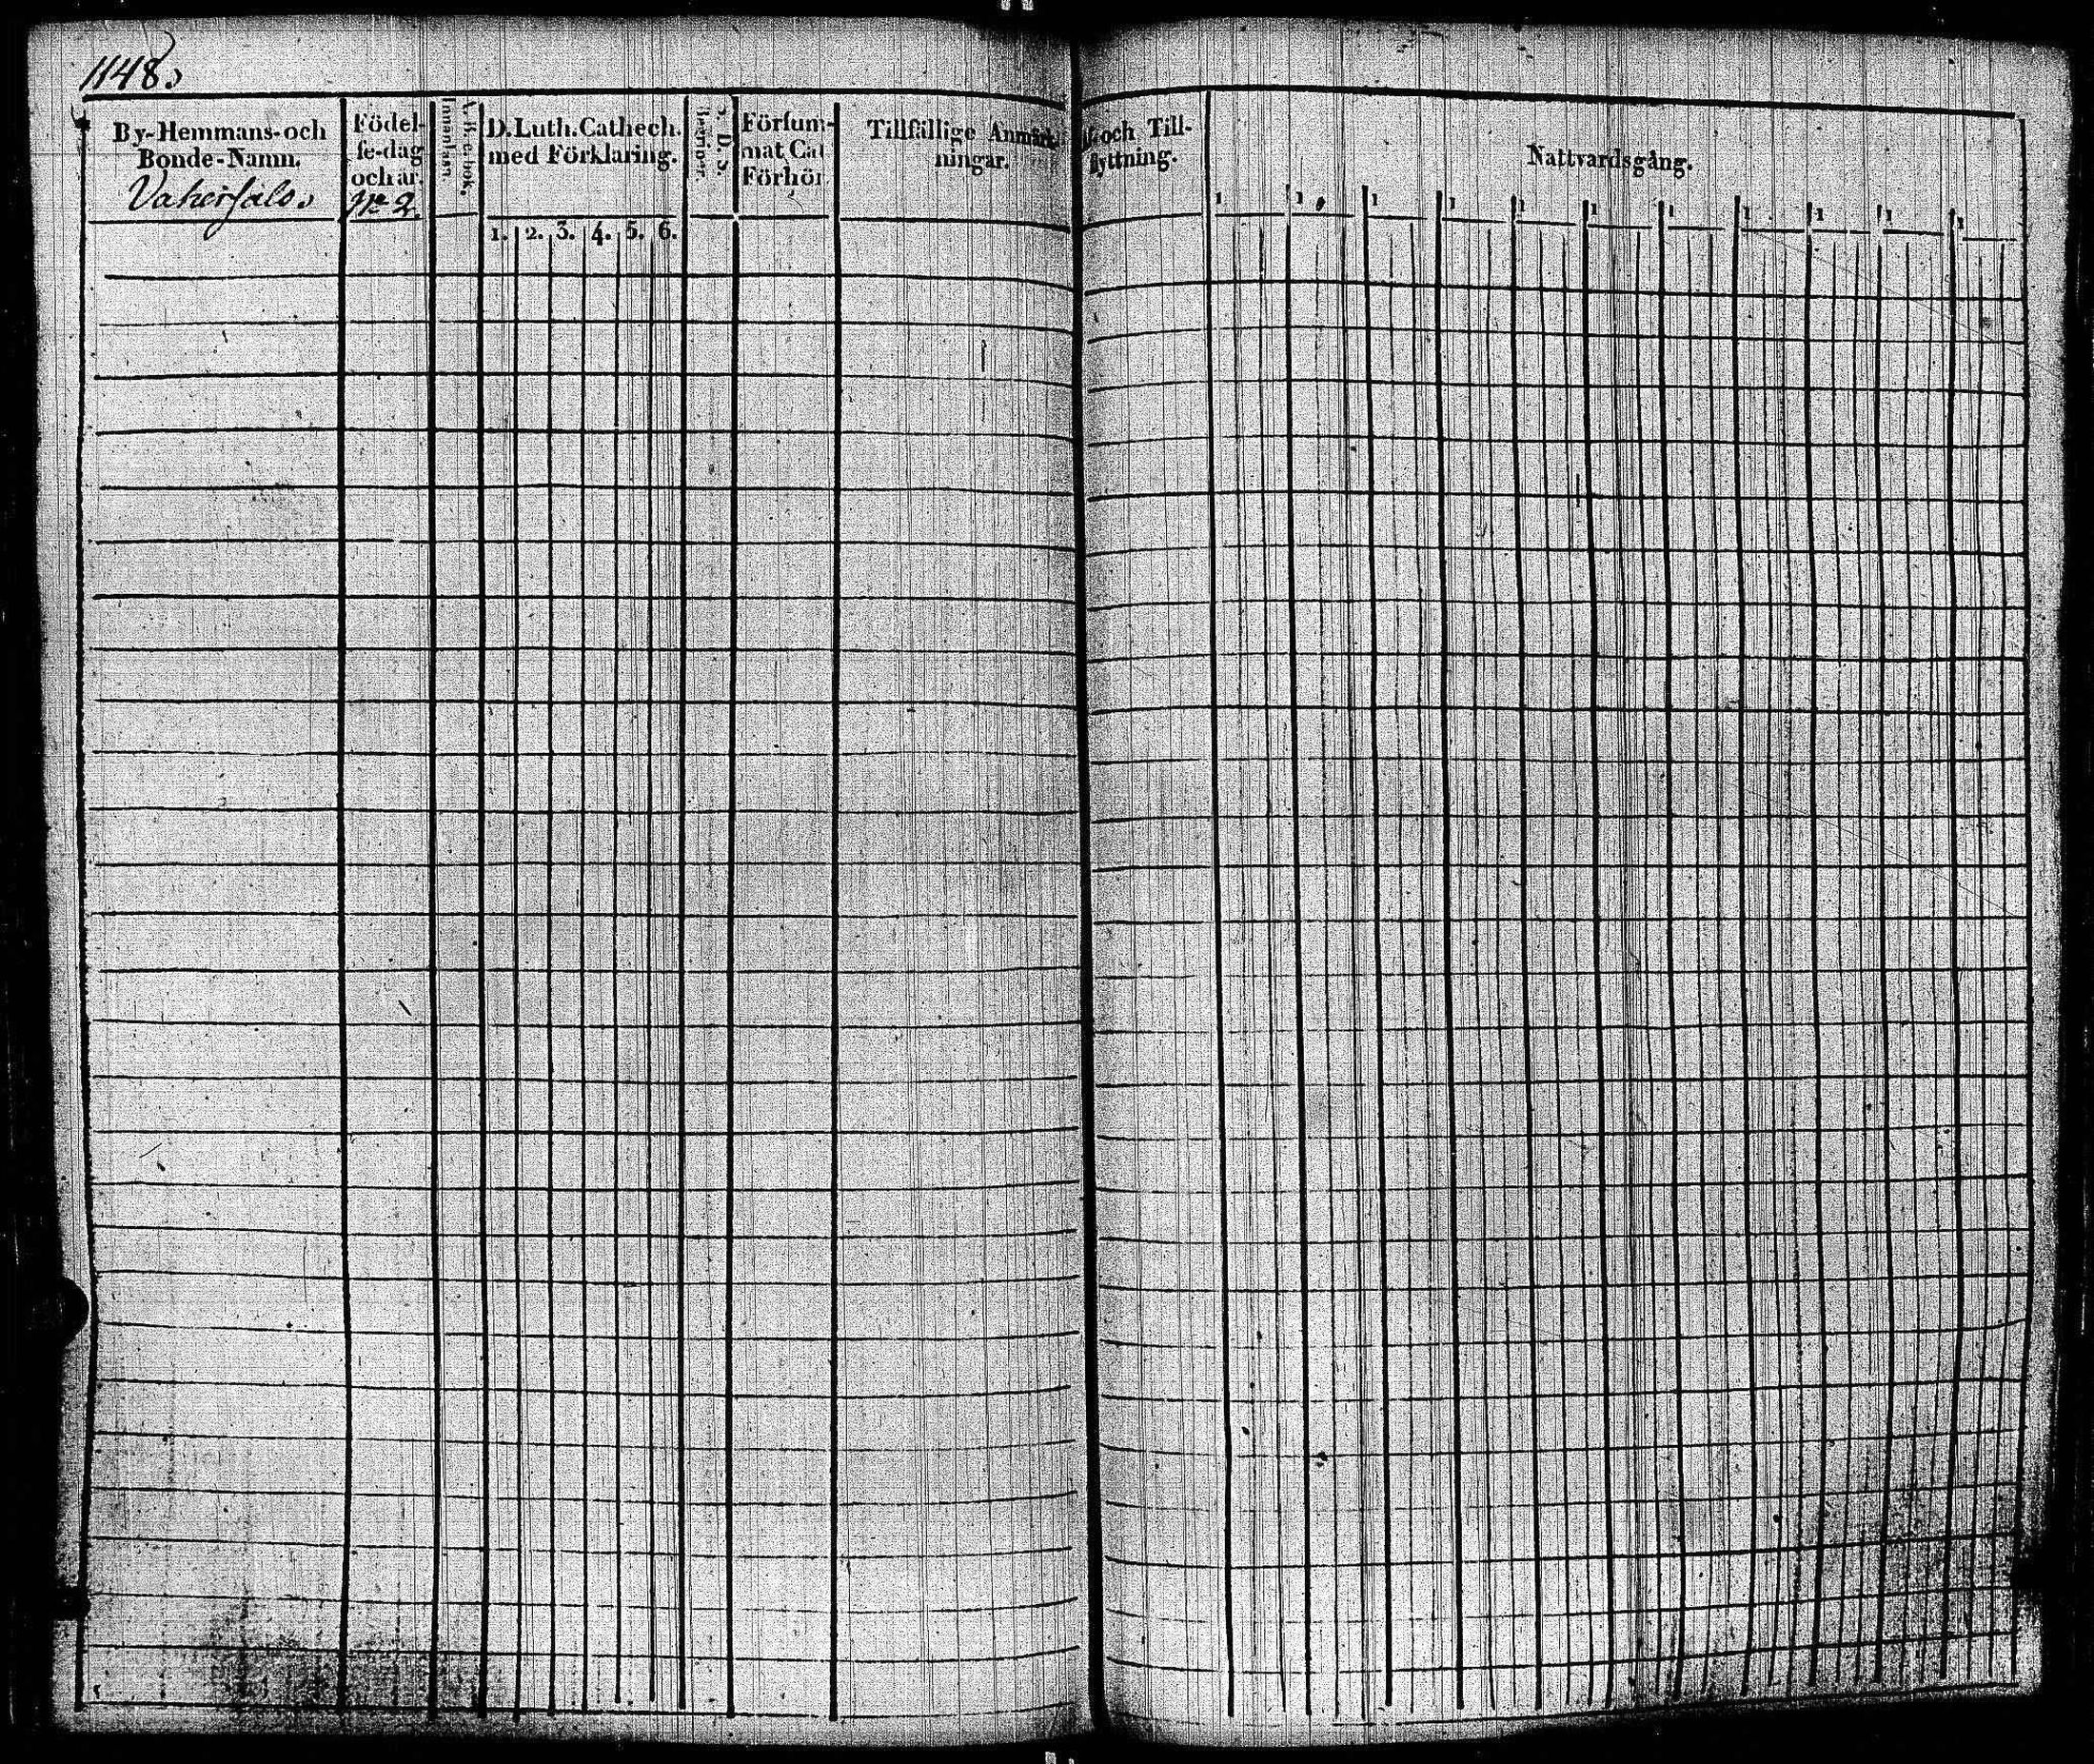 1148.
By-Hemmans-och
Bonde-Namn.
Vakersalo.
Födel-
se-dag
och år.
No 2.
Innanläs.
D. Luth. Cathech.
med Förklaring.
1. 2. 3. 4. 5. 6.
Försum-
mat Cat
Förhör
Tillfällige Anmärk-
ningar.
och Till-
flyttning.
Nattvardsgång.
1 1 1 1 1 1 1 1 1 1 1